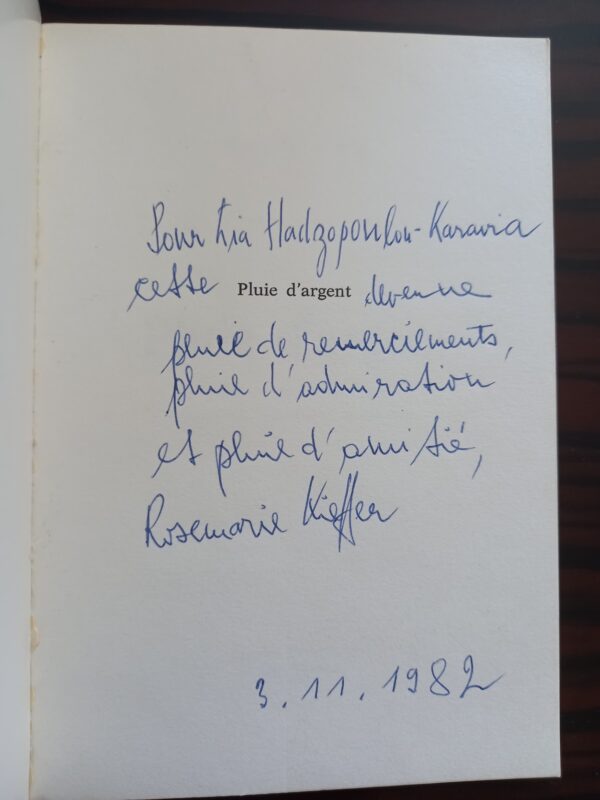 Pour Lia Hadzopoulou-Karavia
cette Pluie d'argent devenue
pluie de remerciements,
pluie d'admiration
et pluie d'amitié,
Rosemarie Kieffer
3.11.1982